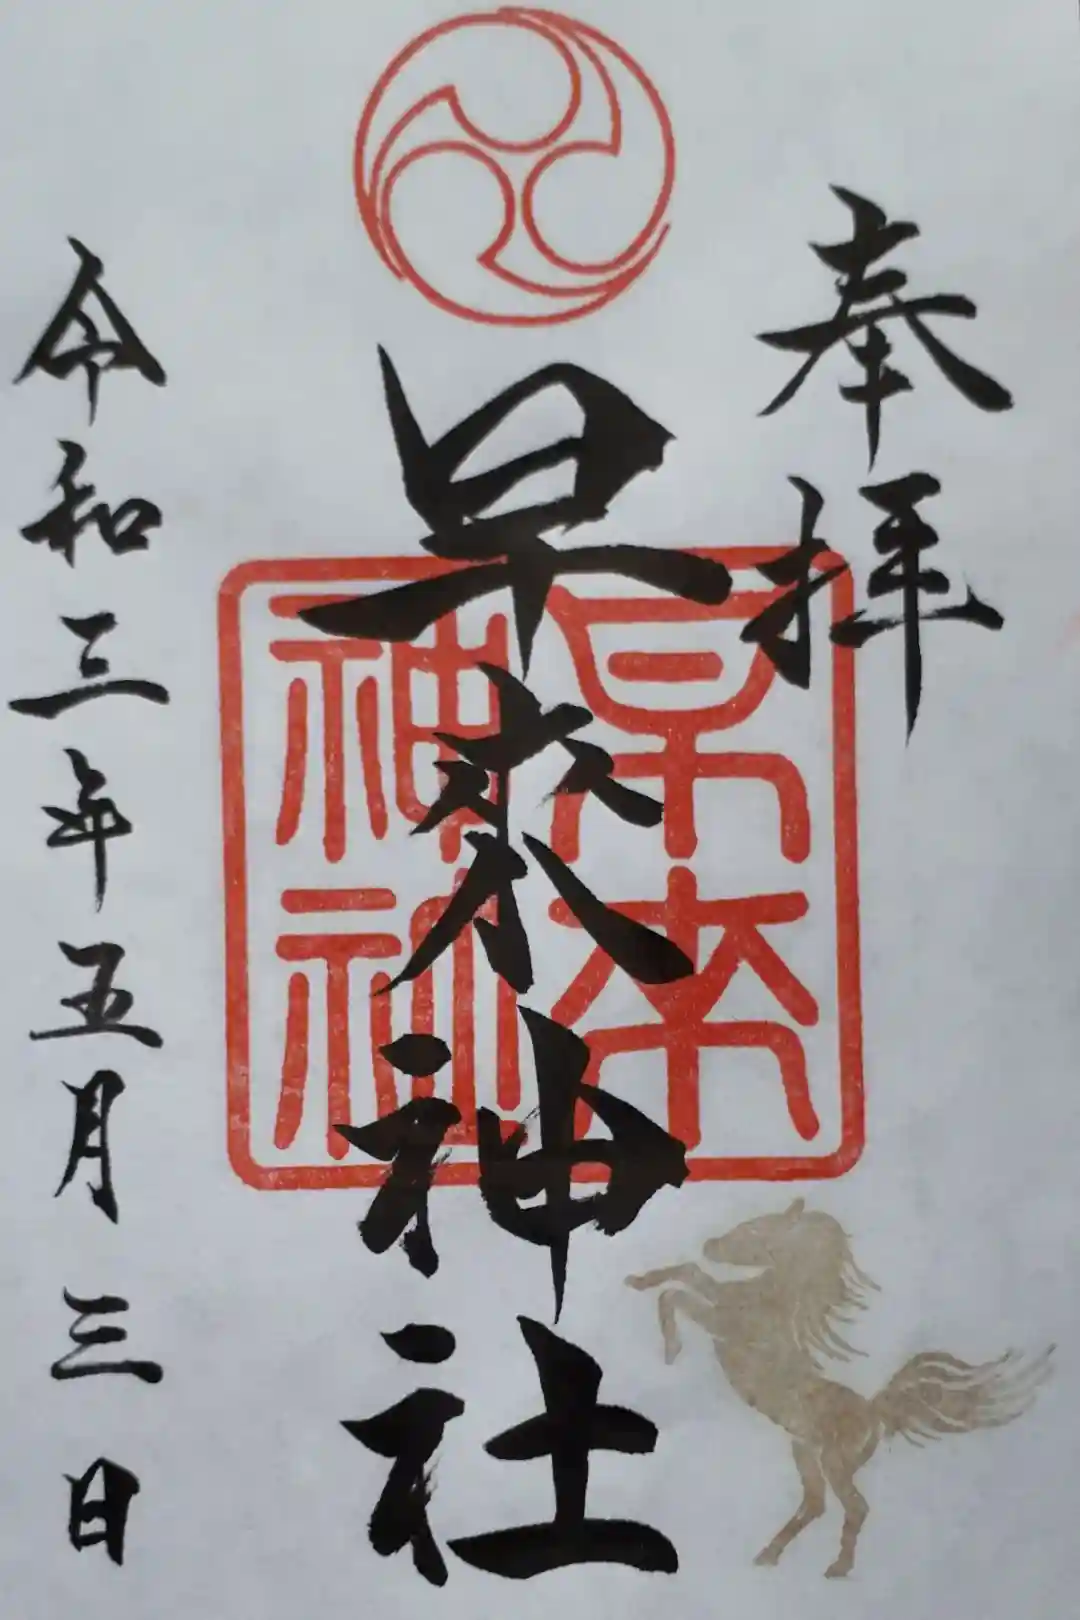 奉拝
早来神社
早来
神社
令和三年五月三日